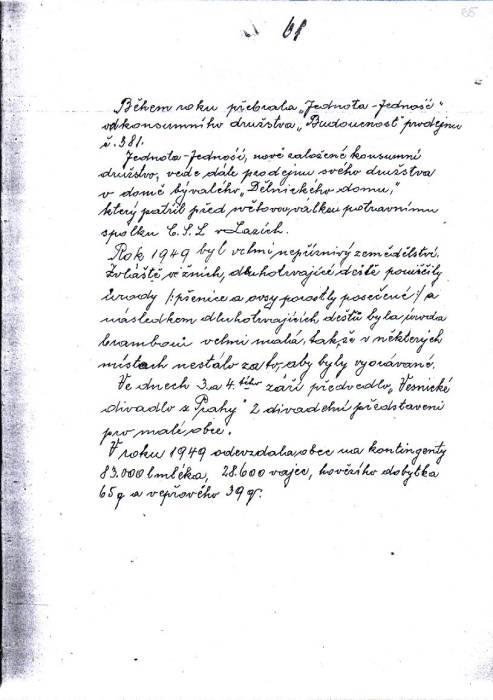 65
61
Během roku přebrala „Jednota-Jedność"
od konsumního družstva „Budoucnost" prodejnu
č. 381.
Jednota-Jedność, nově založené konsumní
družstvo, vede dále prodejnu svého družstva
v domě bývalého „Dělnického domu,"
který patřil před světovou válkou potravnímu
spolku Č.S.L. v Lazích.
Rok 1949 byl velmi nepříznivý zemědělství.
Zvláště ve žních, dluhotrvající deště poničily
úrody /: pšenice a ovsy porostly posečené :/ a
následkem dluhotrvajících dešťů byla úroda
brambor velmi malá, takže v některých
místach nestálo za to, aby byly vyorávané.
Ve dnech 3. a 4. září předvedlo „Vesnické
divadlo z Prahy" 2 divadelní představení
pro malé, obec.
V roku 1949 odevzdala obec na kontingenty
83.000 l mléka, 28.600 vajec, hovězího dobytka
65 q a vepřového 39 q.